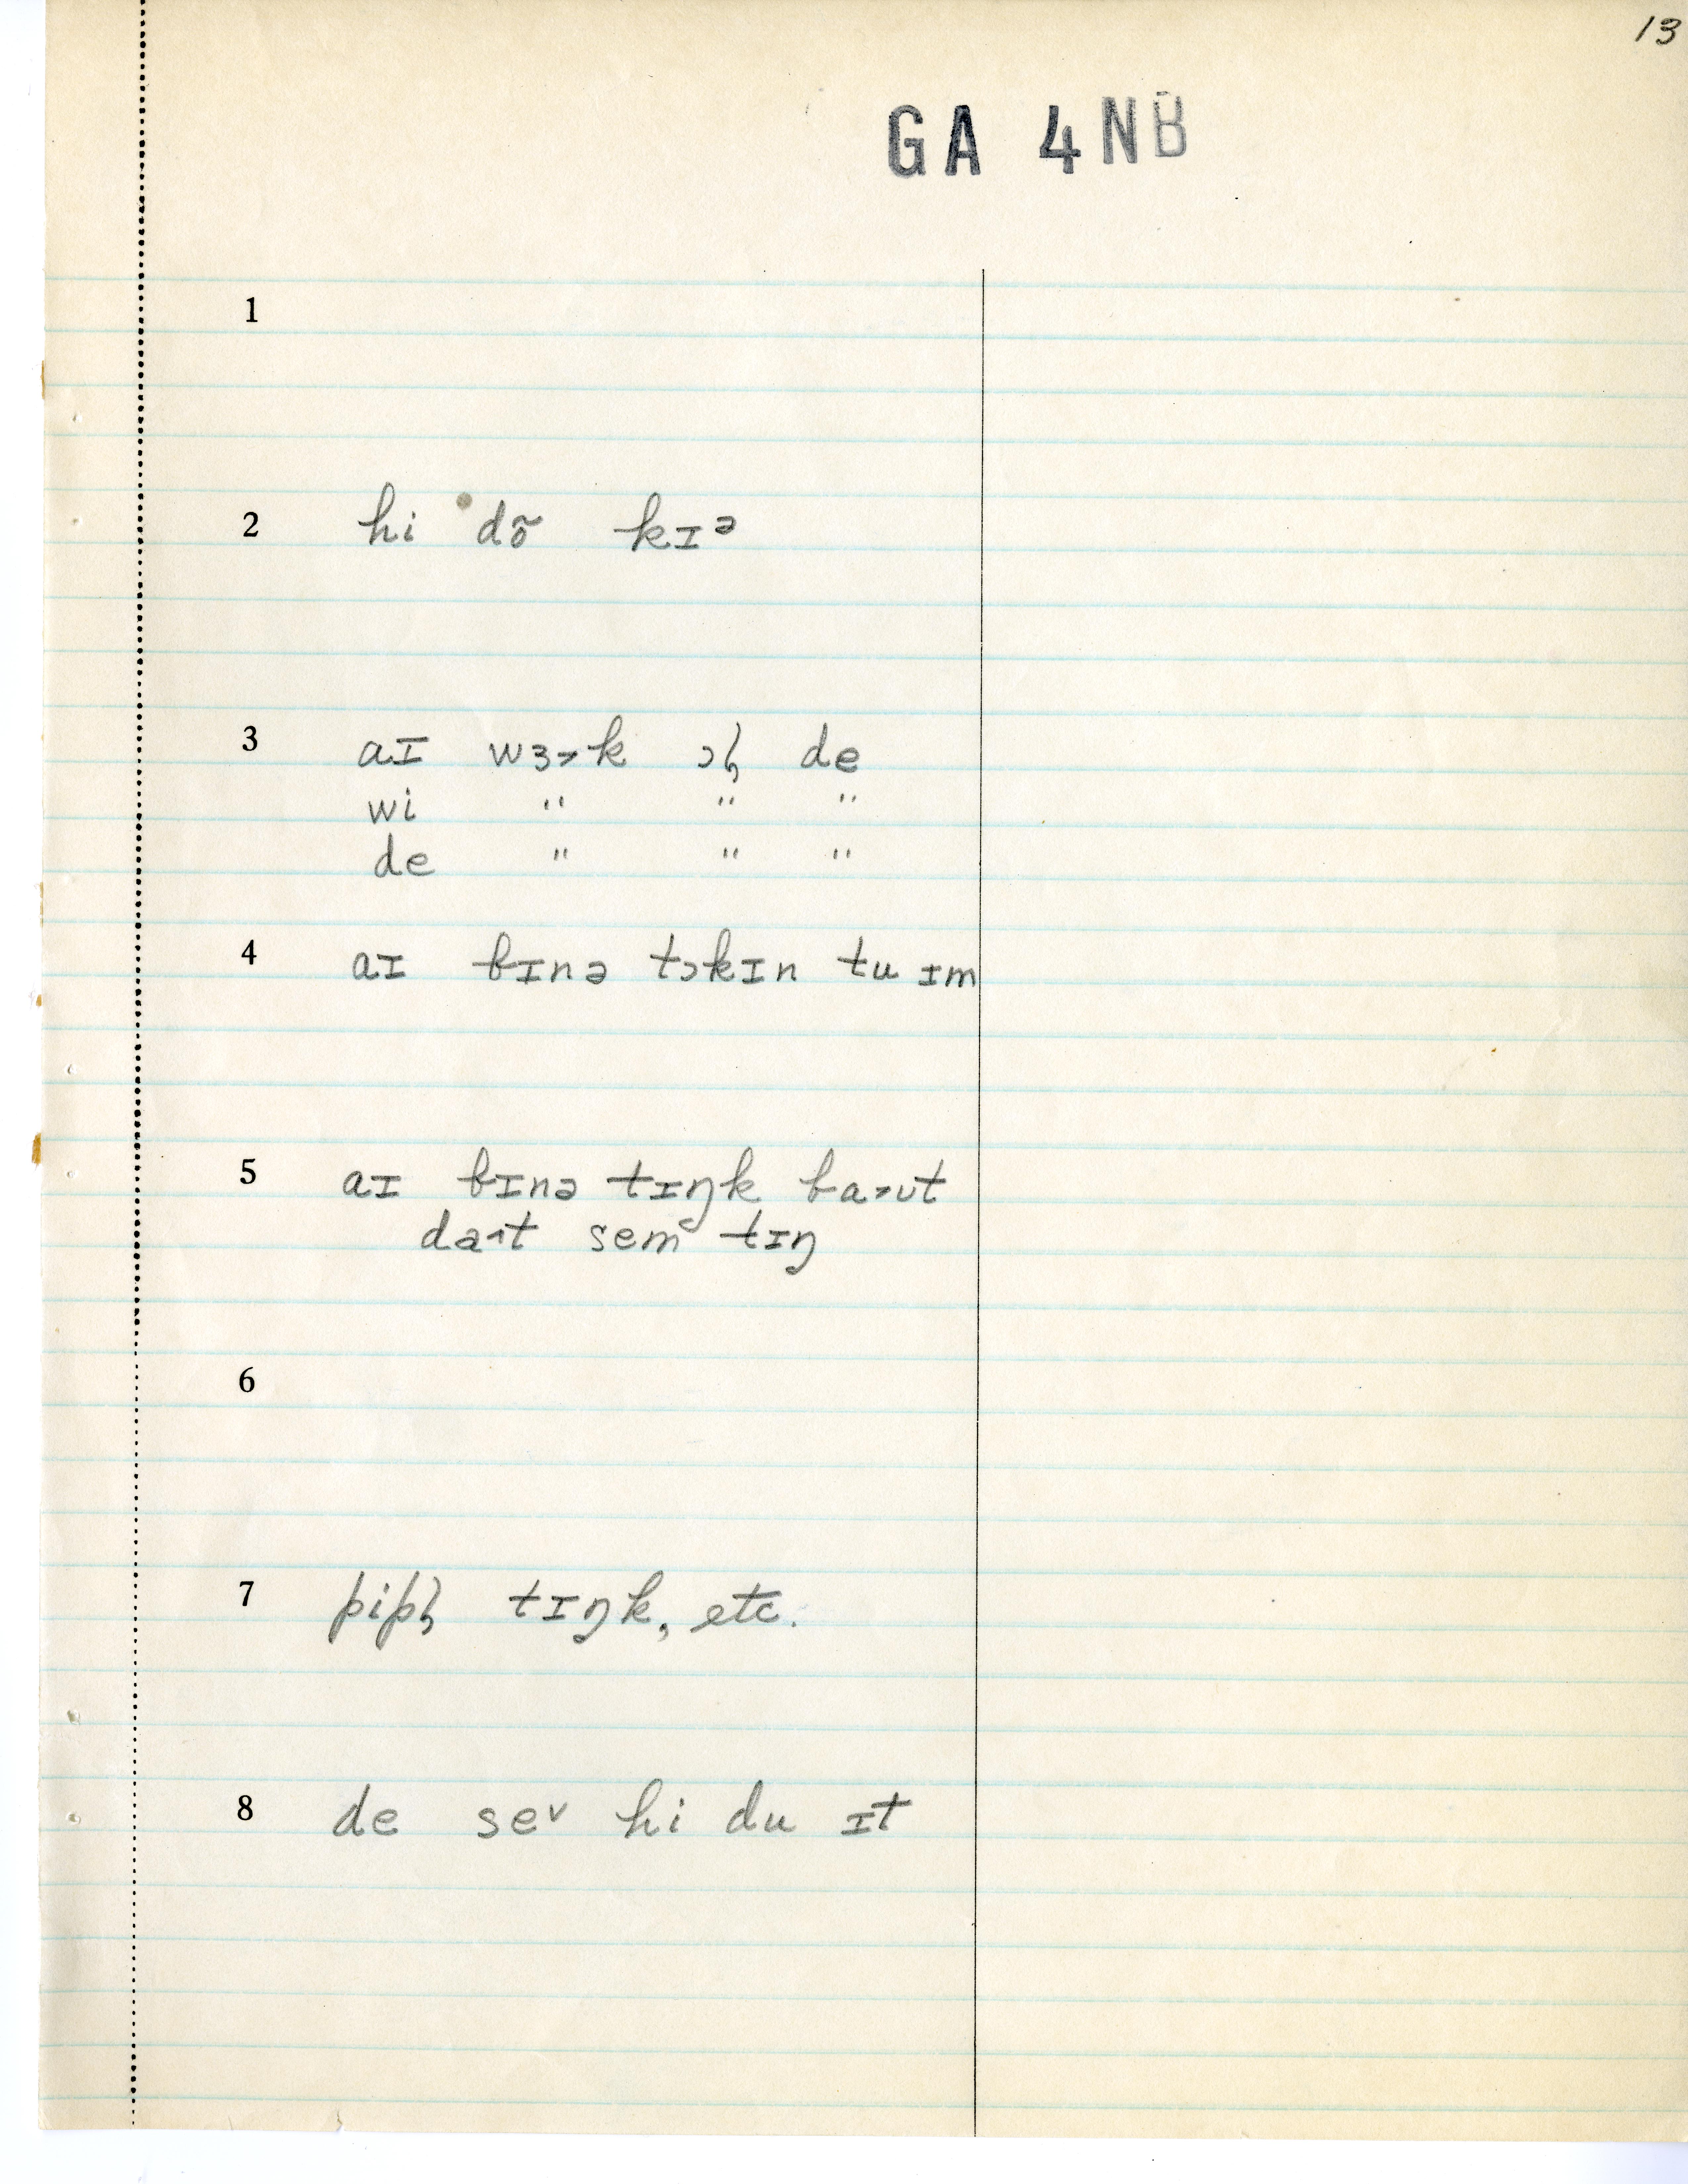 13
GA 4NB
1
2 hi dõ kɪə
3 aɪ wɜ˃k ɔɫ de
wi " " "
de " " "
4 aɪ bɪnə tɔkɪn tu ɪm
5 aɪ bɪnə tɪŋk ba˃ʊt
da˄t sem tɪŋ
6
7 pipɫ tɪŋk, etc.
8 de se˅ hi du ɪt